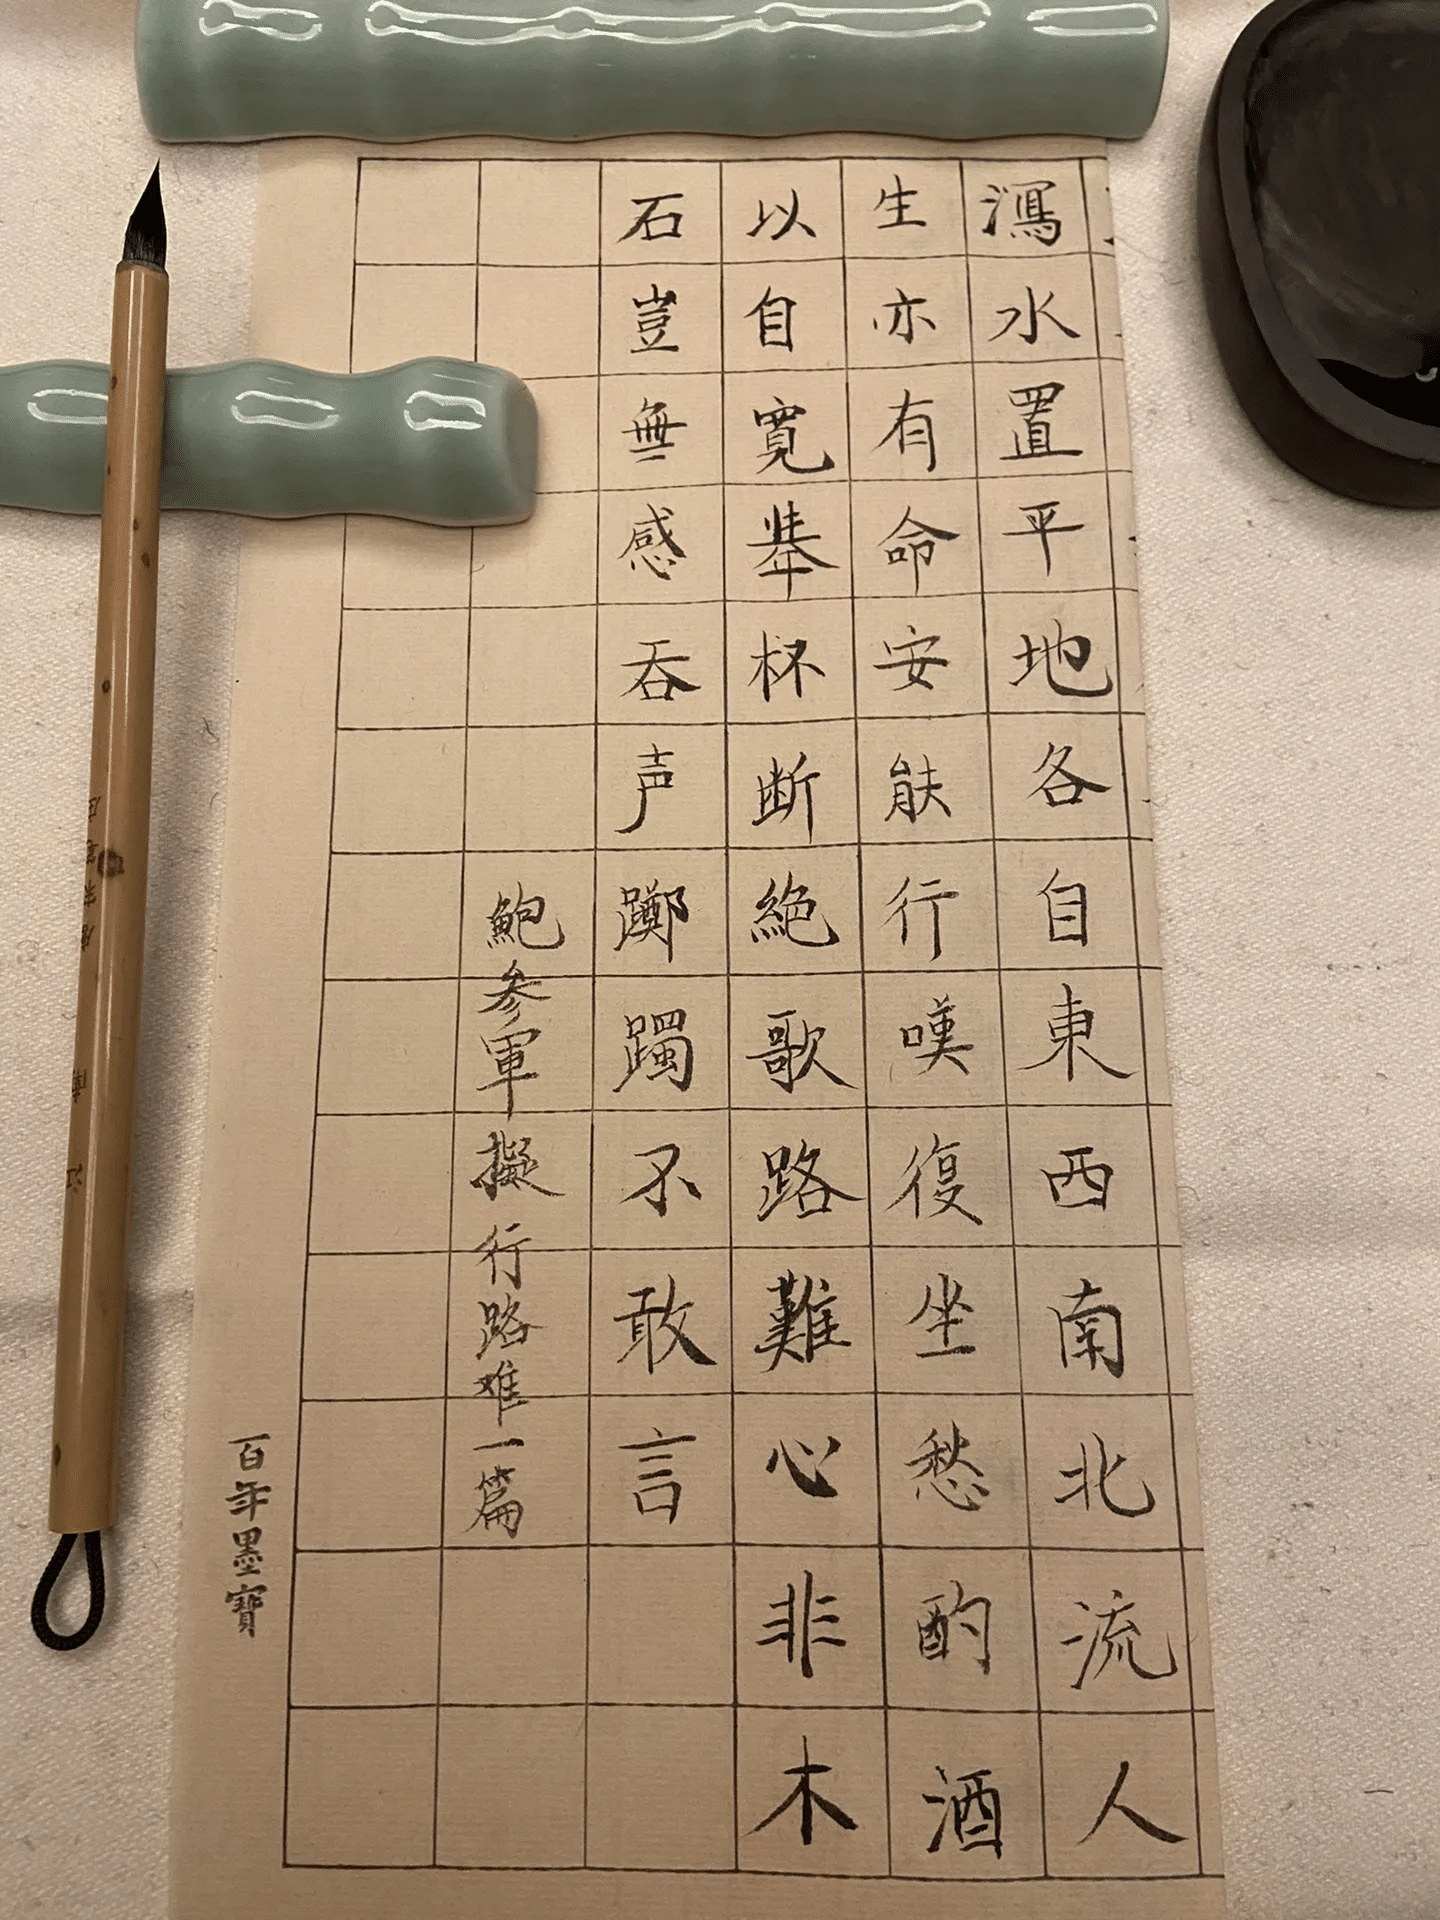 瀉水置平地各自東西南北流人
生亦有命安能行嘆復坐愁酌酒
以自寬舉杯断絕歌路難心非木
石豈無感吞声躑躅不敢言
鮑参軍擬行路难一篇
百年墨寶